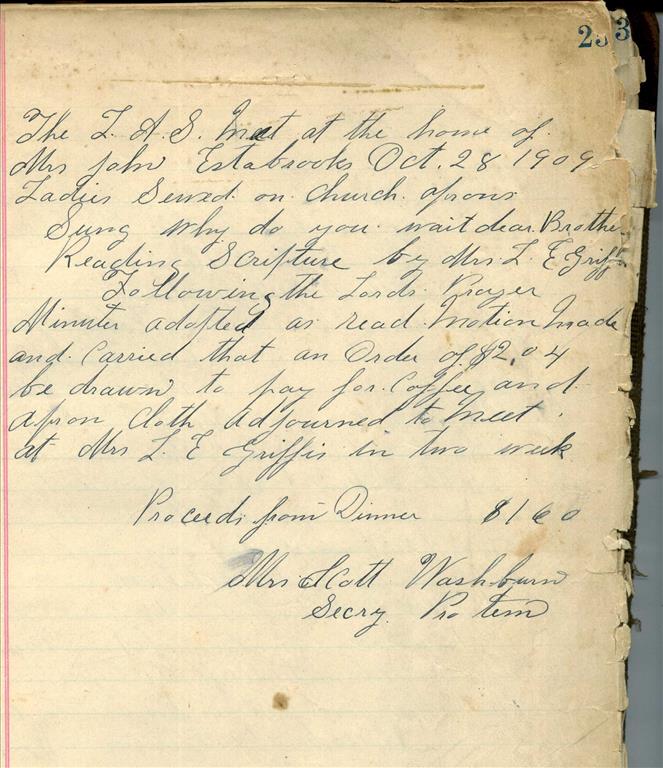 233
The L. A. S. Meet at the home of
Mrs John Estabrooks Oct. 28 1909
Ladies Sewed on Church aprons
Sung Why do you wait dear Brother
Reading Scripture by Mrs. L E Griffis
Following the Lords Prayer
Minutes adopted as read Motion Made
and Carried that an Order of $2.04
be drawn to pay for Coffee and
apron cloth adjourned to Meet
at Mrs L E Griffis in two week
Proceeds from Dinner $1 60
Mrs Scott Washburn
Secry. Pro tem